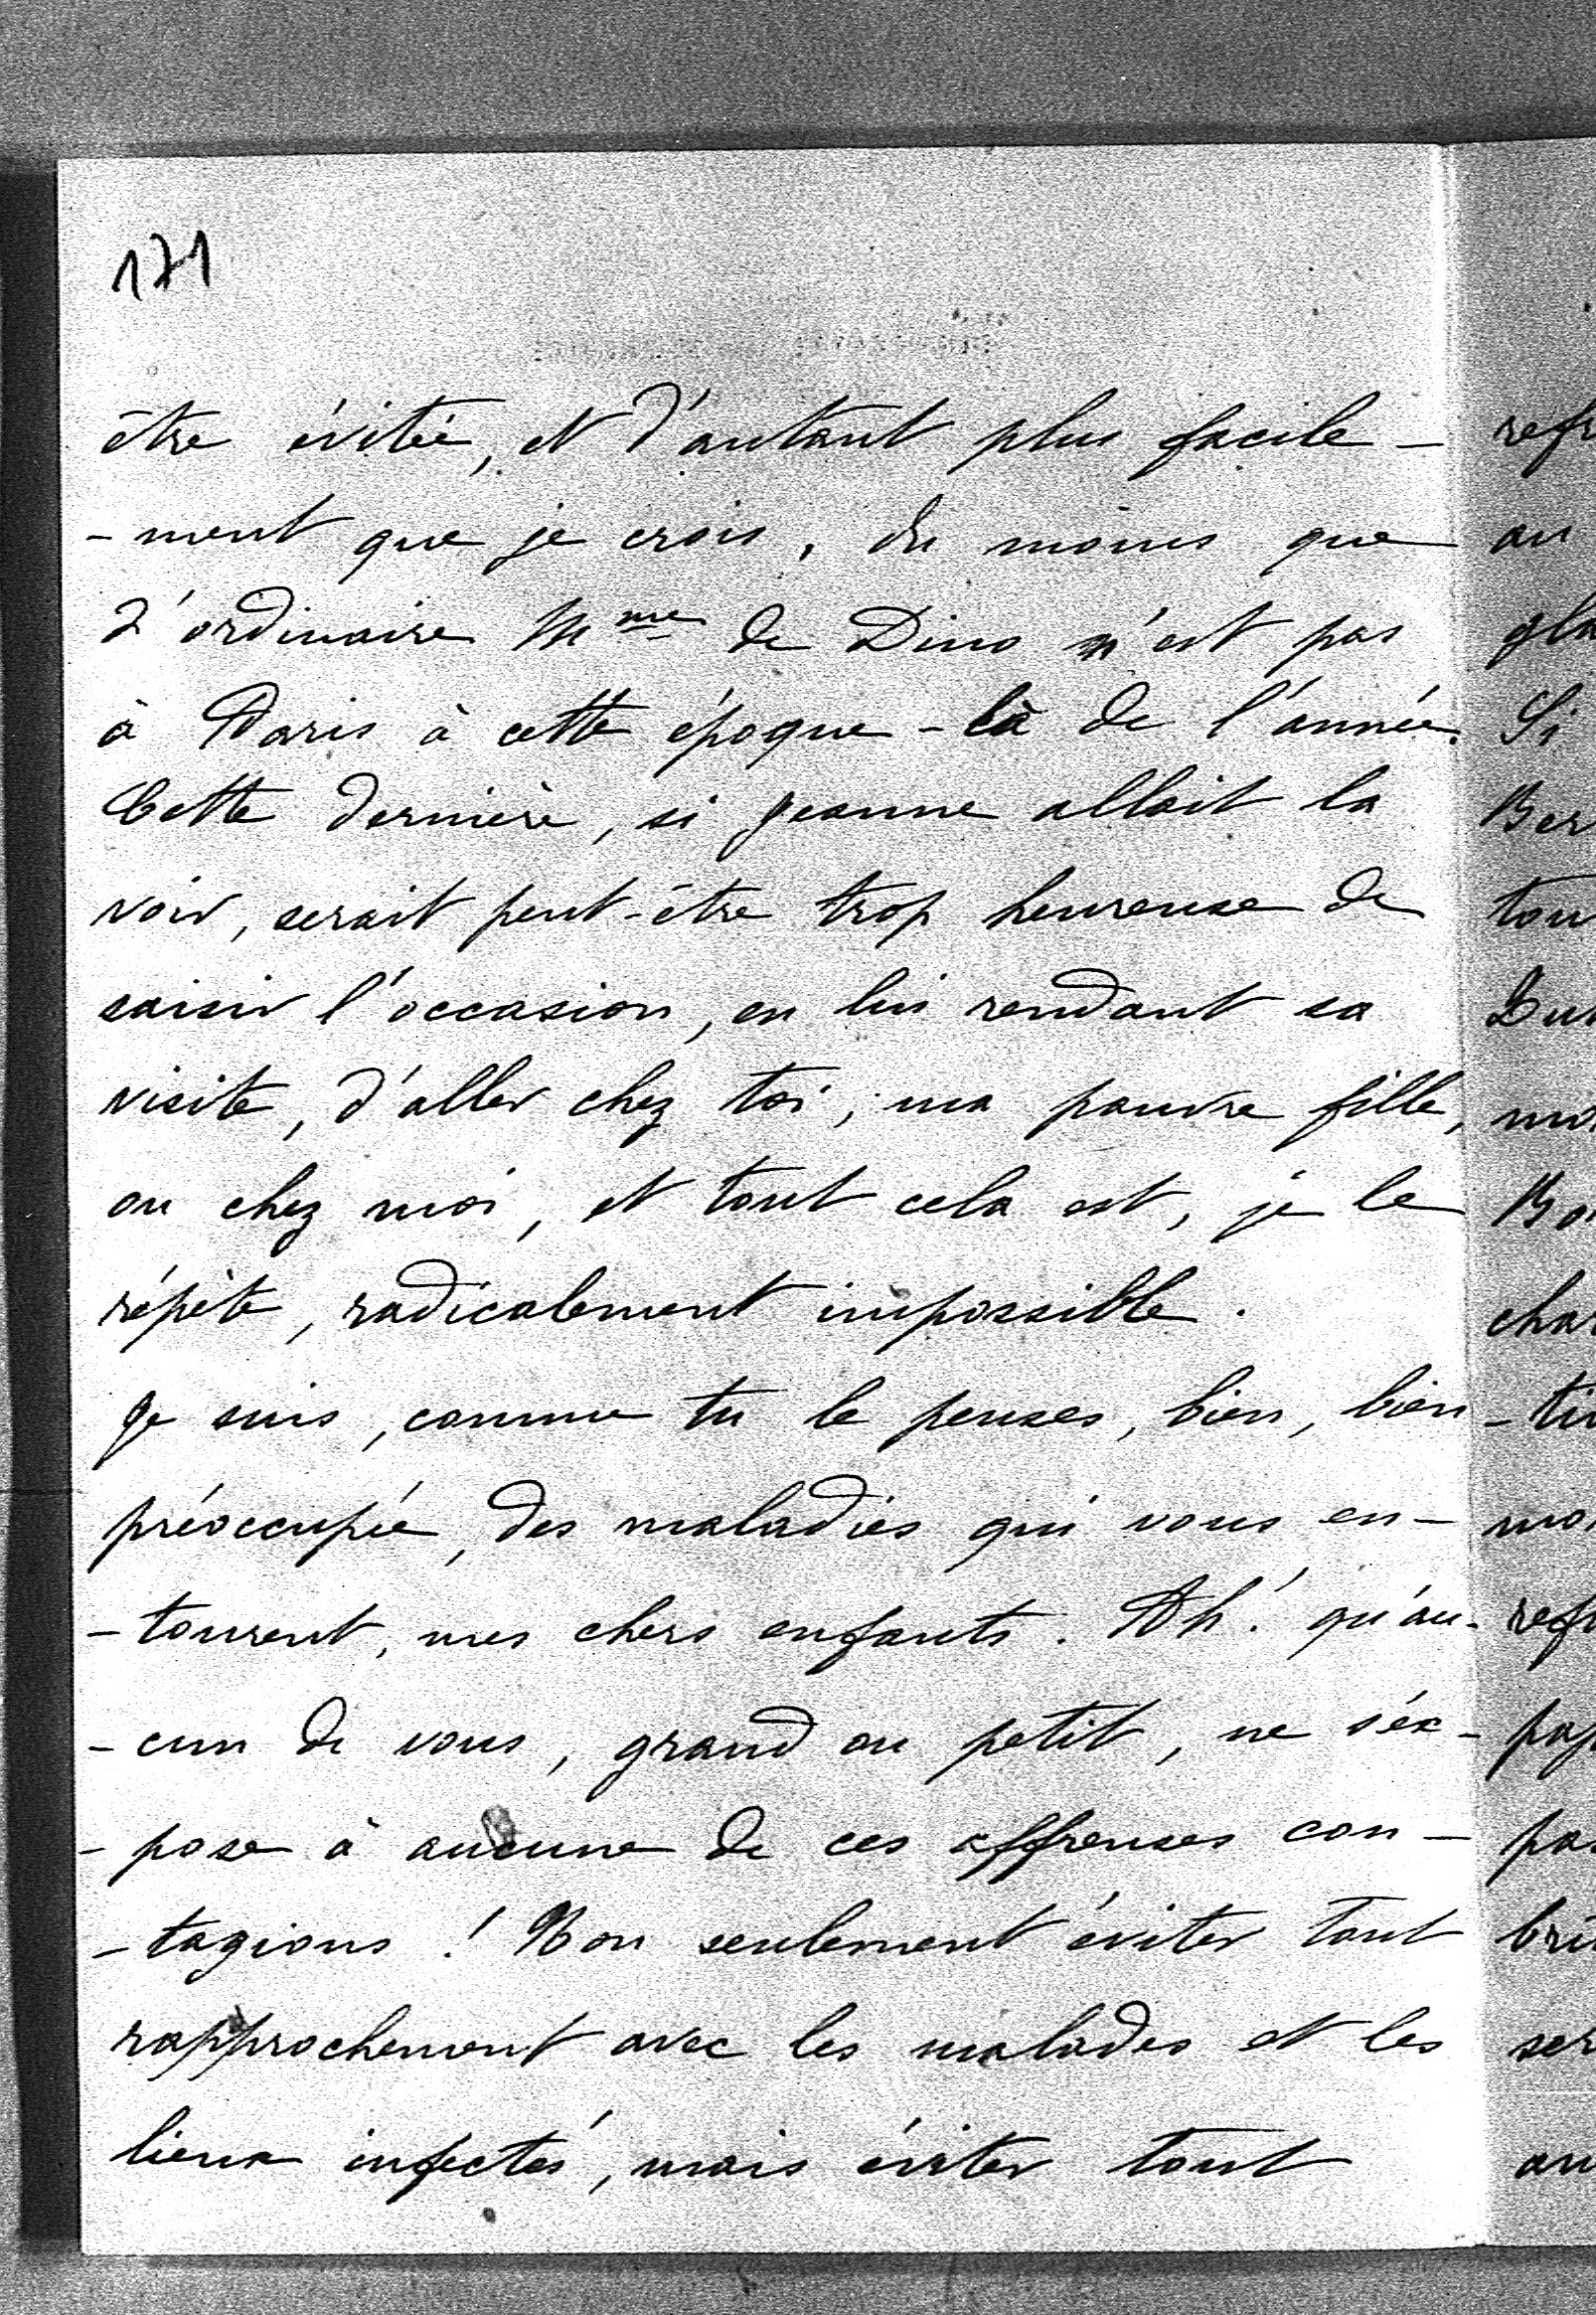 171
être évitée, et d'autant plus facile-
-ment que je crois, du moins que
d'ordinaire Mme de Dino n'est pas
à Paris à cette époque-là de l'année.
Cette dernière, si Jeanne allait la
voir, serait peut-être trop heureuse de
saisir l'occasion, en lui rendant sa
visite, d'aller chez toi, ma pauvre fille,
ou chez moi, et tout cela est, je le
répète, radicalement impossible.
Je suis, comme tu le penses, bien, bien
préoccupée, des maladies qui vous en-
-tourent, mes chers enfants. Ah! qu'au-
-cun de vous, grand ou petit, ne s'ex-
-pose à aucune de ces affreuses con-
-tagions! Non seulement éviter tout
rapprochement avec les malades et les
lieux infectés, mais éviter tout